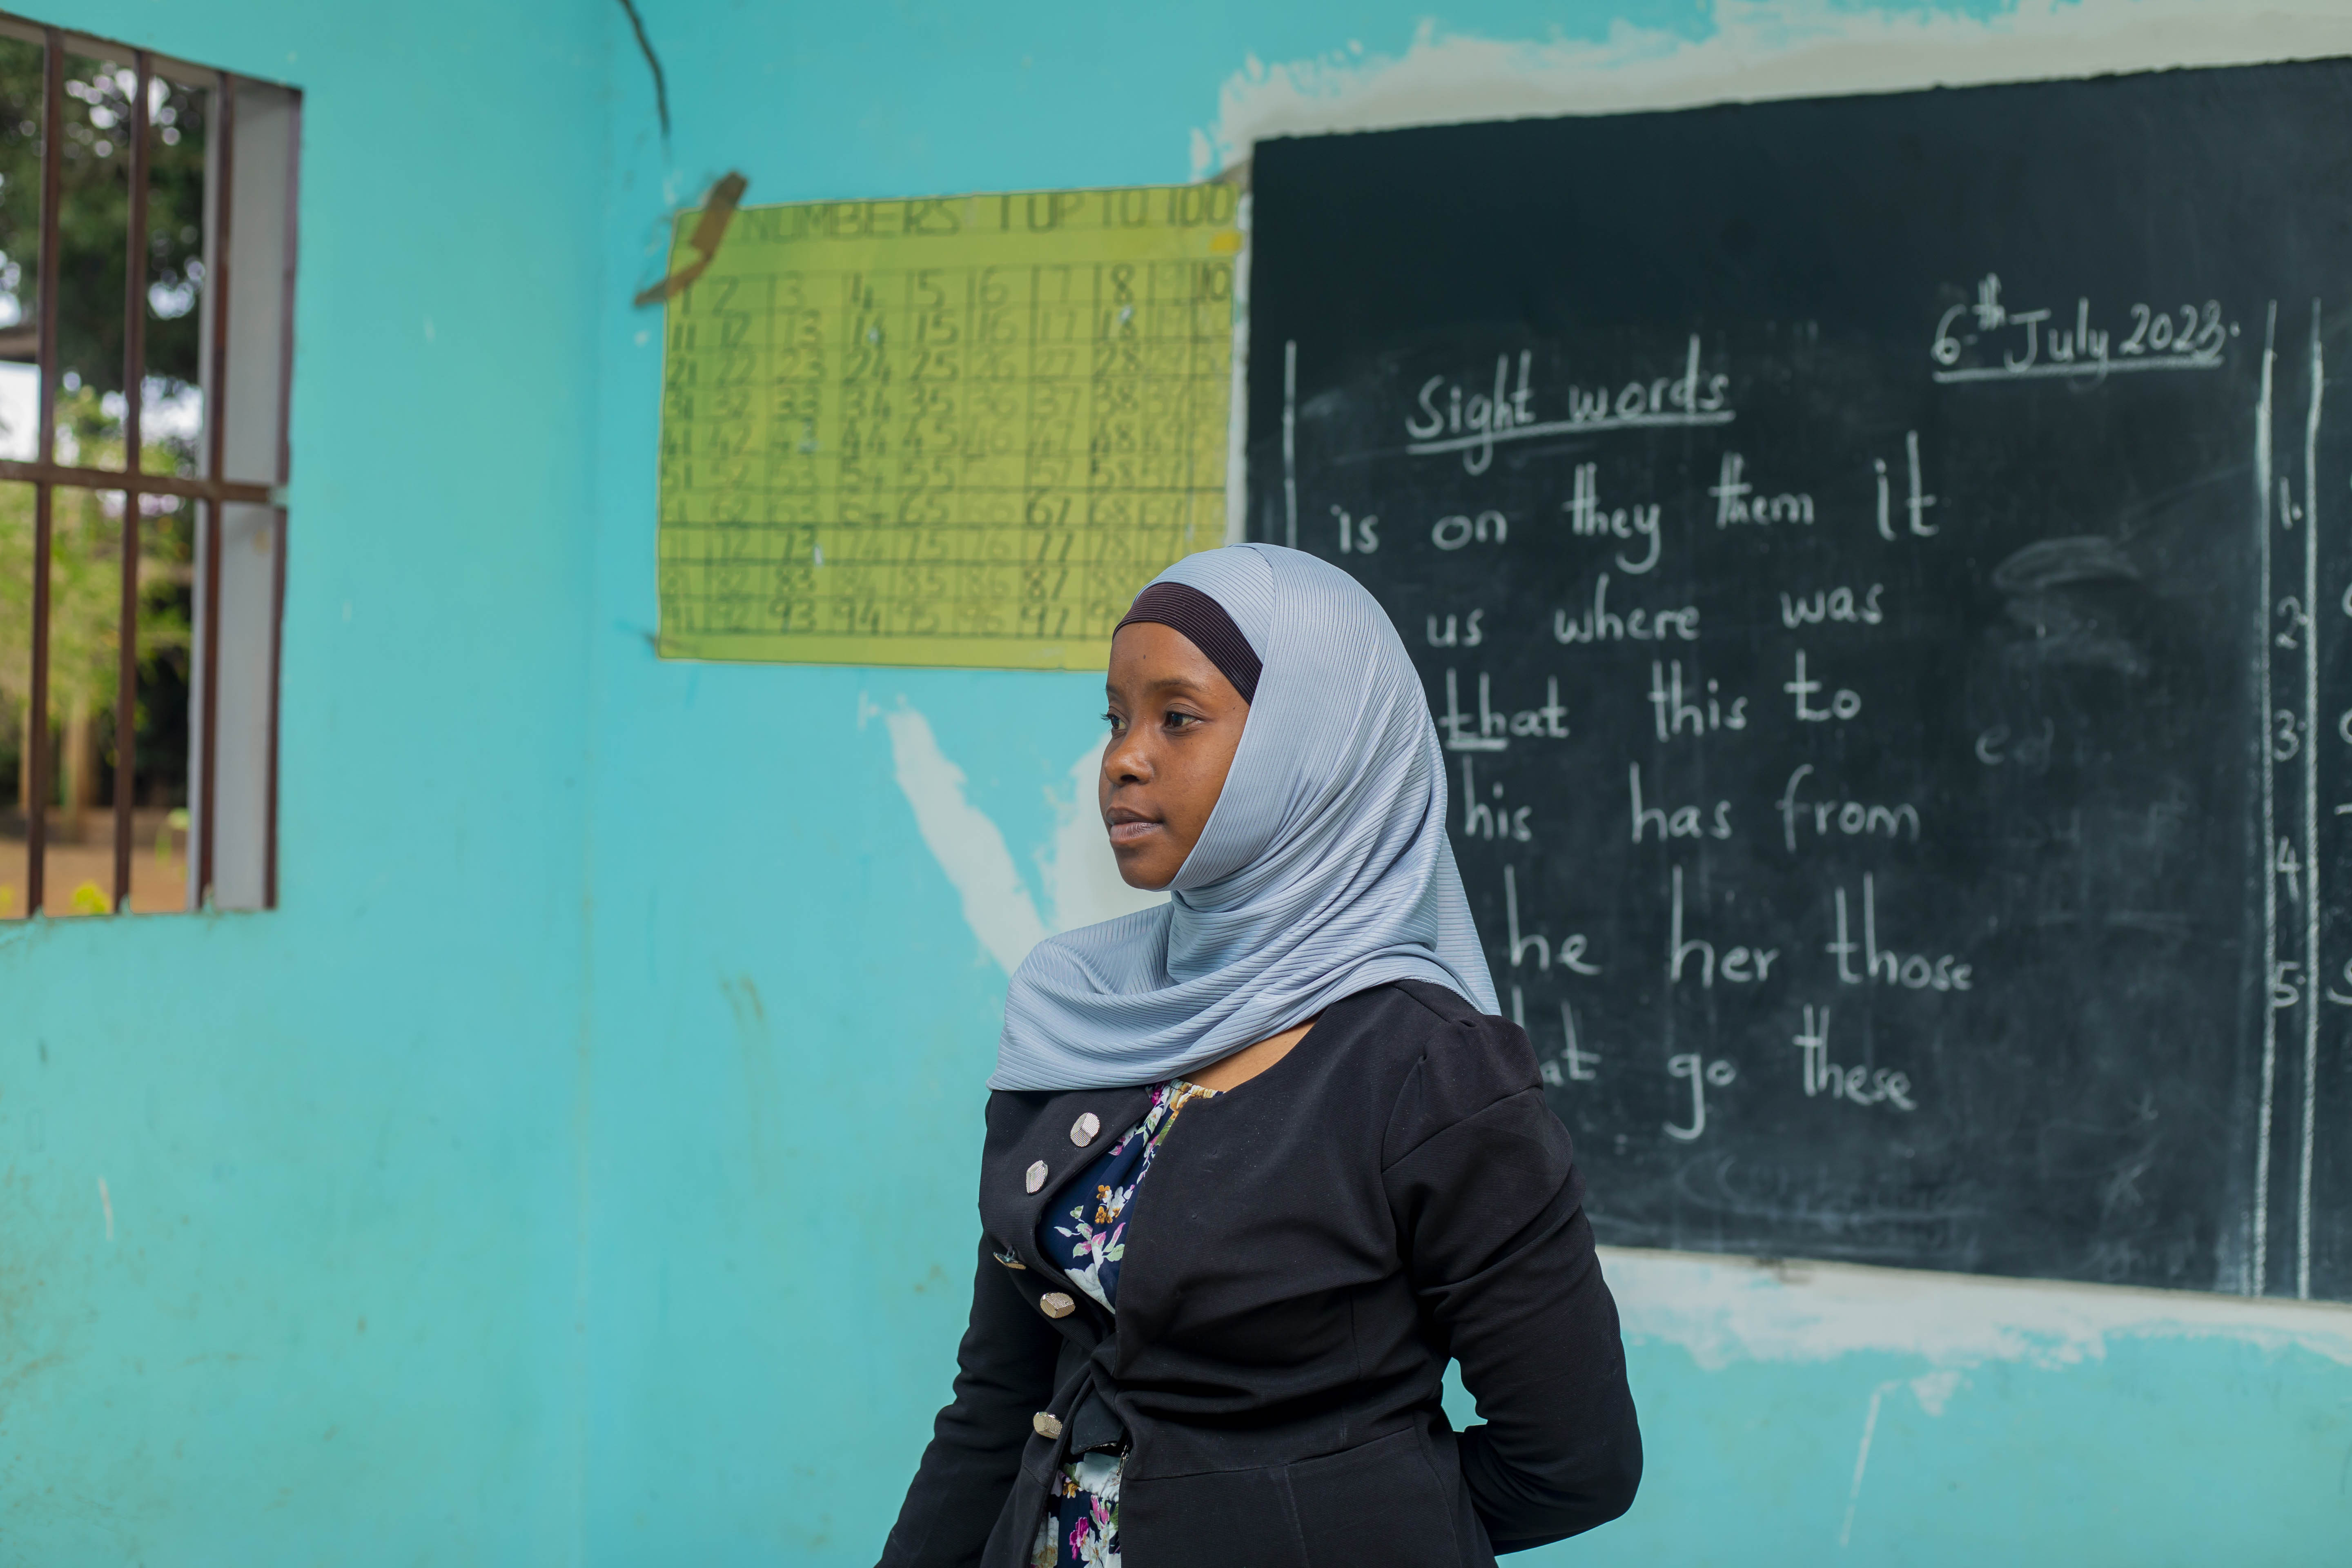 NUMBERS 1 UP TO 100
1 2 3 4 5 6 7 8 10
11 12 13 14 15 16 17 18
21 22 23 24 25 26 27 28
31 32 33 34 35 36 37 38
44 45 46 48
51 52 53 54 55 57 58
62 63 64 65 66 67 68
72 73 74 75 76 77 78
82 83 84 85 86 87
92 93 94 95 96 97
6th July 2023.
Sight words
is on they them it
us where was
that this to
his has from
he her those
at go these
ed
1.
2.
3.
4
5.